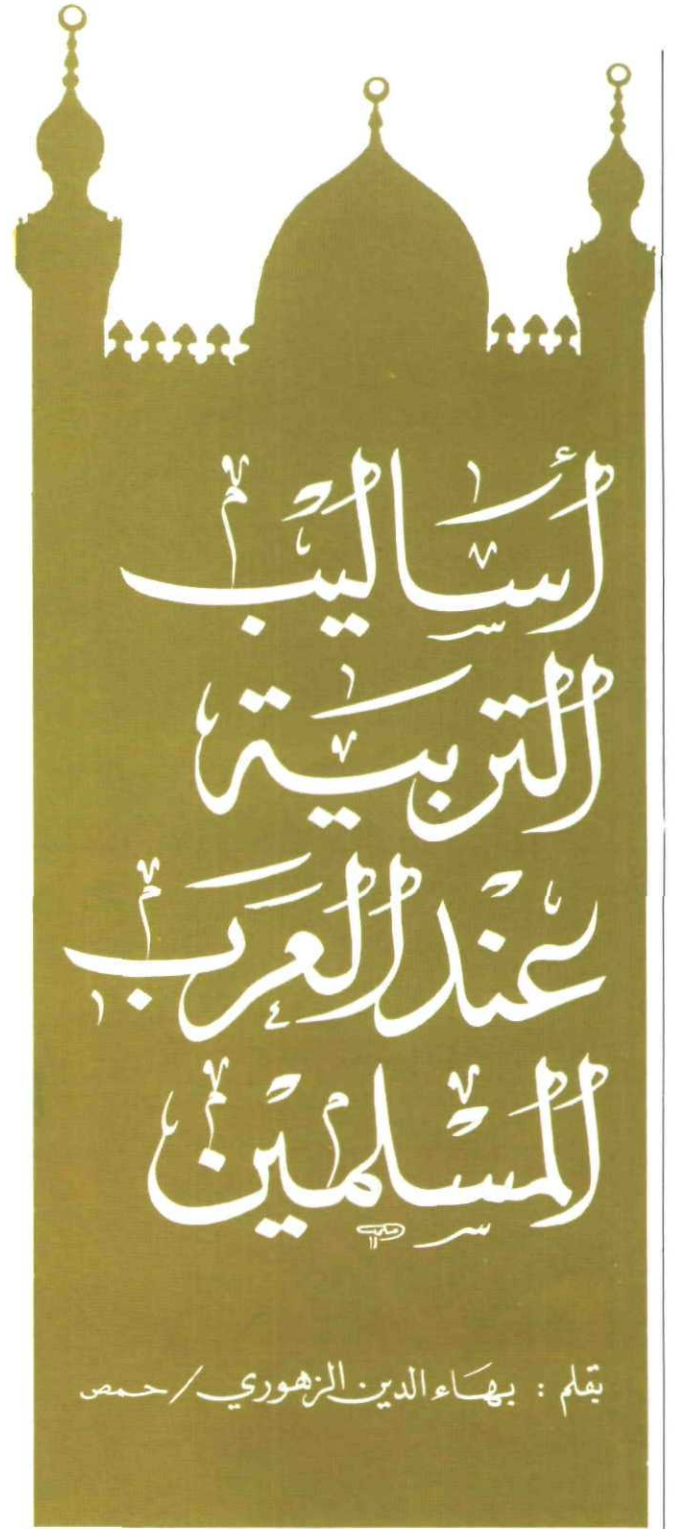 أساليب
التربية
عند العرب
المسلمين
بقلم : بهاء الدين الزهوري / حمص